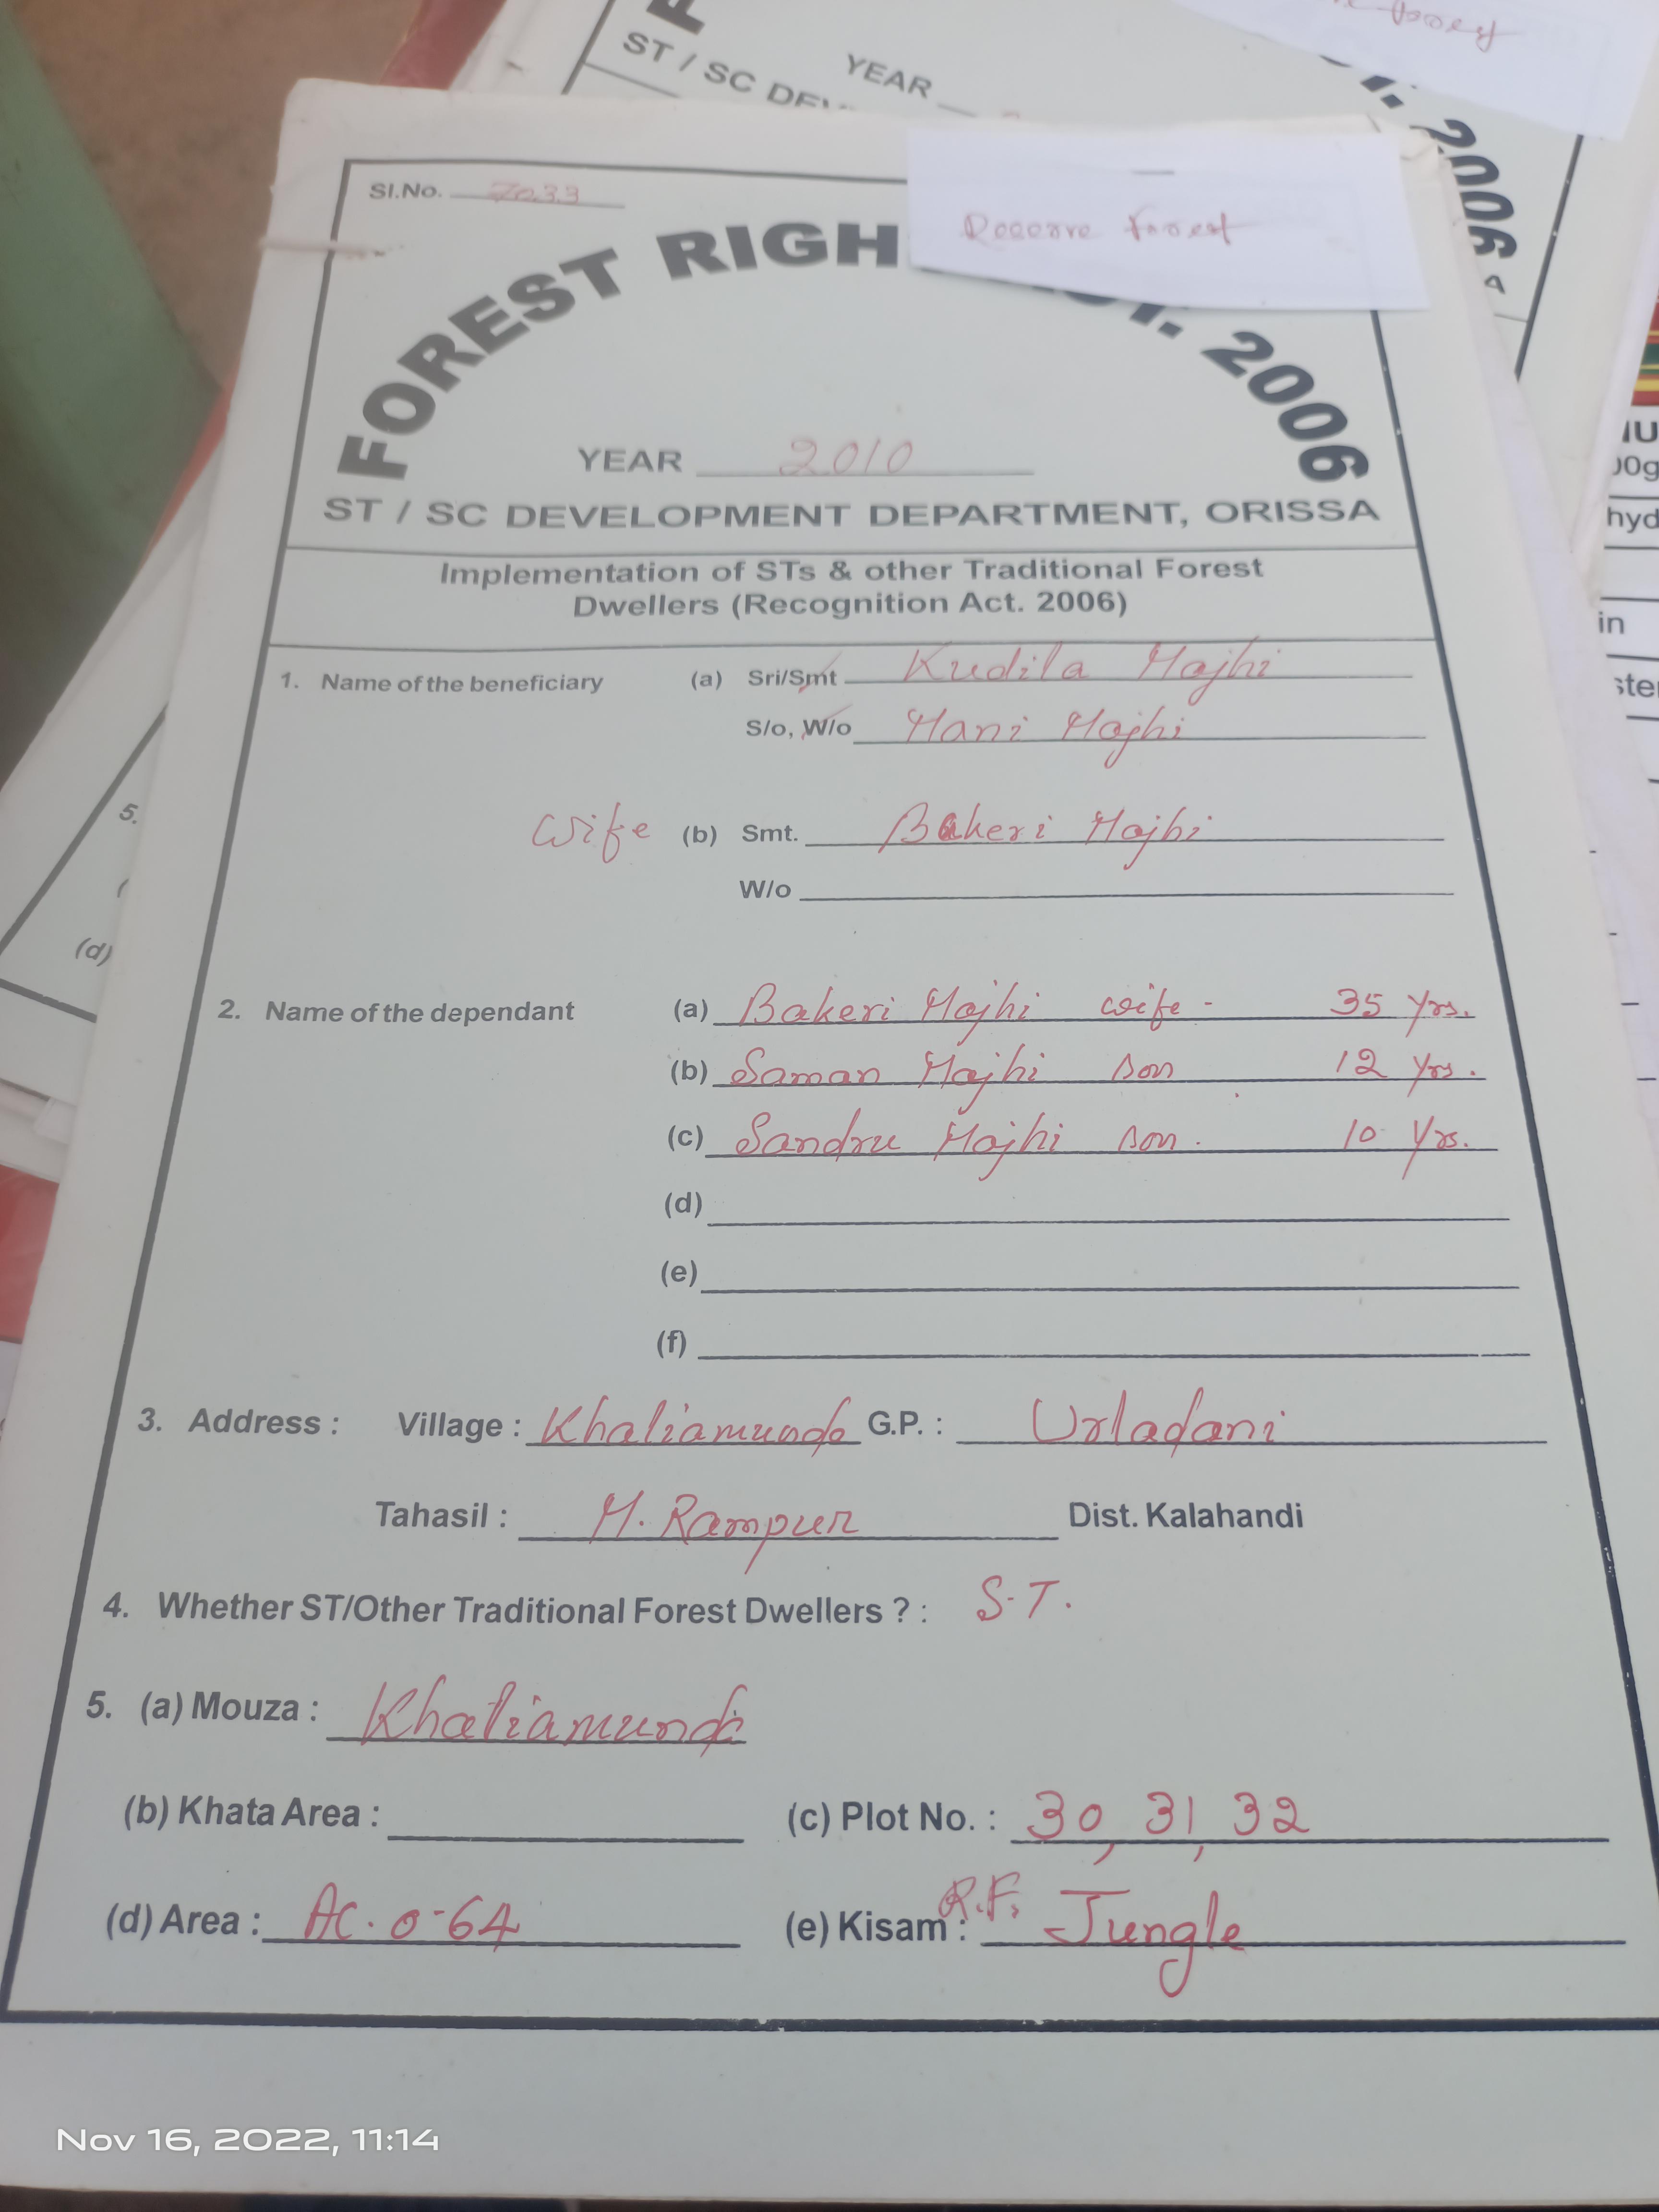 ST / SC DEV
YEAR
2006
Sl.No. 7033
Reserve Forest
FOREST RIGH
2006
YEAR 2010
ST / SC DEVELOPMENT DEPARTMENT, ORISSA
Implementation of STs & other Traditional Forest
Dwellers (Recognition Act. 2006)
1. Name of the beneficiary (a) Sri/Smt Kudila Majhi
S/o, W/o Mani Majhi
Wife (b) Smt. Bakeri Majhi
W/o
2. Name of the dependant (a) Bakeri Majhi wife - 35 Yrs.
(b) Saman Majhi son 12 Yrs.
(c) Sandru Majhi son. 10 Yrs.
(d)
(e)
(f)
3. Address : Village : Khaliamunda G.P. : Urladani
Tahasil : M. Rampur Dist. Kalahandi
4. Whether ST/Other Traditional Forest Dwellers ? : S.T.
5. (a) Mouza : Khaliamunda
(b) Khata Area : (c) Plot No. : 30, 31, 32
(d) Area : AC. 0-64 (e) Kisam : R.F. Jungle
5.
(d)
Nov 16, 2022, 11:14